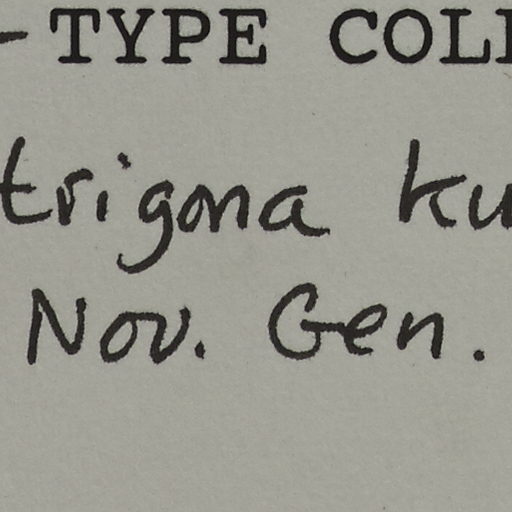 -TYPE COLL
trigona ku
Nov. Gen.